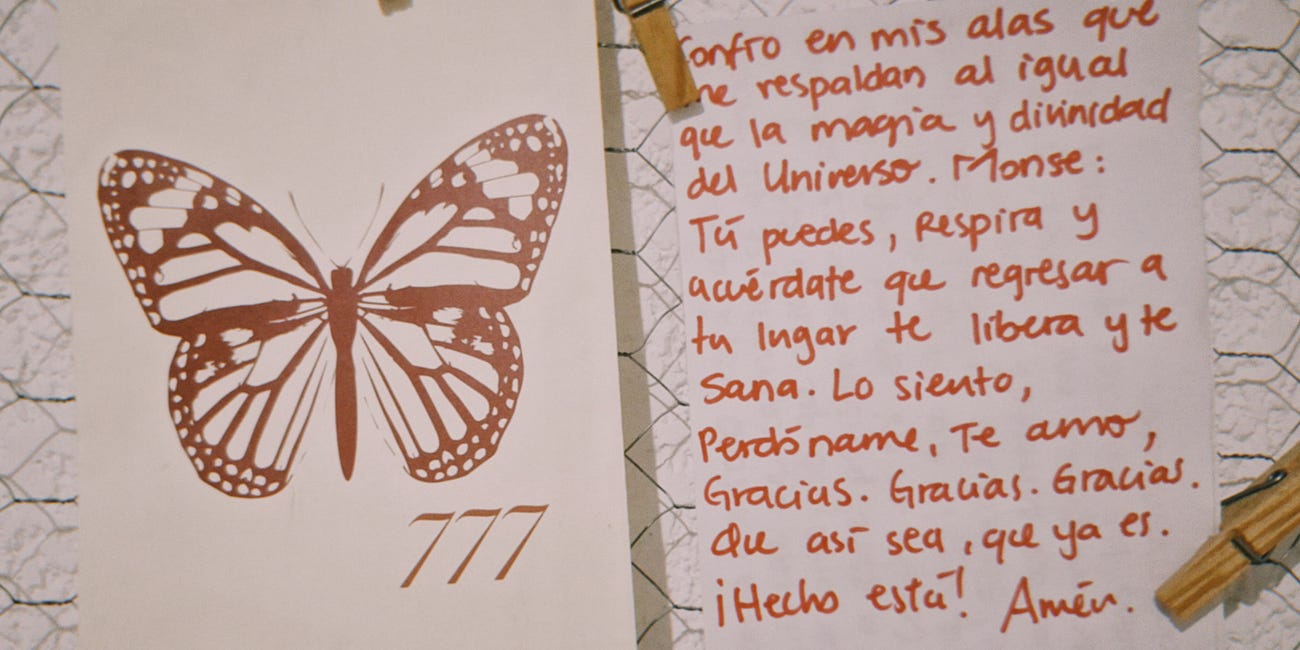 777
Confío en mis alas que
me respaldan al igual
que la magia y divinidad
del Universo. Monse:
Tú puedes, Respira y
acuérdate que regresar a
tu lugar te libera y te
Sana. Lo siento,
Perdóname, Te amo,
Gracias. Gracias. Gracias.
Que así sea, que ya es.
¡Hecho está! Amén.